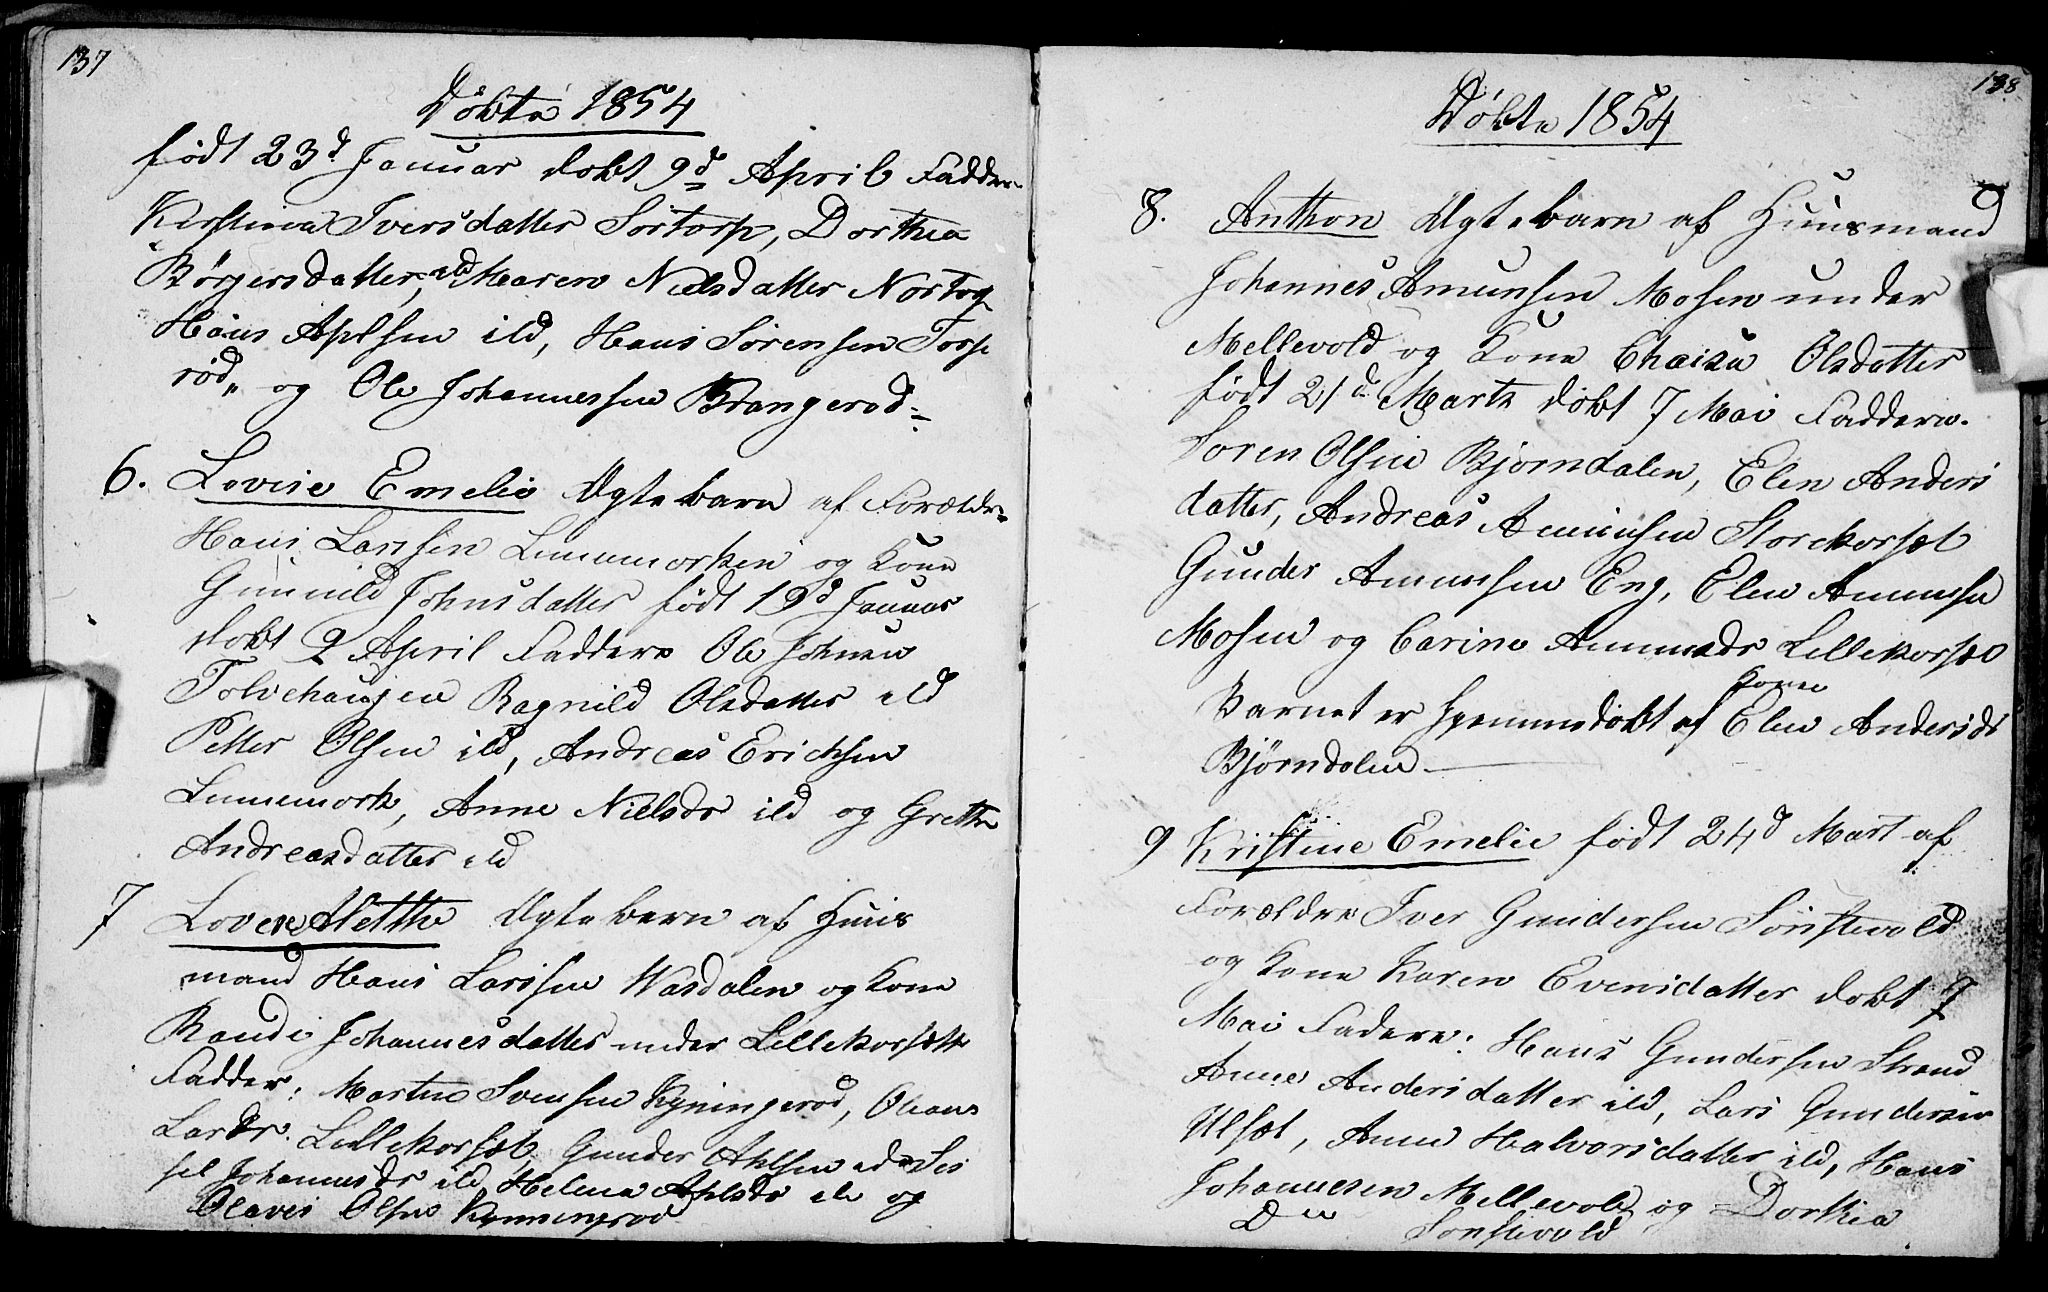 137
Döbte 1854
födt 23d Januar döbt 9d April Fadder
Kirstina Iversdatter Sörtorp, Dorthea
Börgersdatter, ild Maren Nielsdatter Nortorp
Hans Aplsen ild, Hans Sörensen Torp
röd„ og Ole Johannessen Brangerod
6. Lovise Emelie Ægtebarn af Forældre
Hans Larssen Linnemorken og Kone
Gunnild Johnsdatter födt 19d Januar
döbt 2 April Faddere Ole Johnsen
Tolvehaugen Ragnild Olsdatter ild
Petter Olsen ild, Andreas Erichsen
Linnemork, Anne Nielsdr ild og Grethe
Andreasdatter ild
7 Lovere Mette Ægtebarn af Huus
mand Hans Larssen Wasdalen og Kone
Randi Johannesdatter under Lillekorsæt
Fadder: Martin Svensen Kyningeröd, Oleane
Larsdr. Lillekorsæt Gunder Aplsen ild Sis
sel Johannesdr ild, Helena Aplsdr ild og
Olaves Olsen Kynningrod
138
Döbte 1854
8. Anthon Ægtebarn af Huusmand
Johannes Amunsen Mosen under
Mellevold og Kone Chaisa Olsdatter
födt 21d Marts döbt 7 Mai Faddere.
Soren Olsen Bjorndalen, Elen Anders
datter, Andreas Amunsen Storekorsæt
Gunder Amunsen Eng, Elen Amunsen
Mosen og Carine Ammundr Lillekorsæt
Barnet er hjemmedöbt af Kone Elen Andersdr
Bjørndalen
9 Kristine Emelie födt 24d Mart af
Forældre Iver Gundersen Sönstevold
og Kone Karen Evensdatter döbt 7
Mai Fadere: Hans Gundersen Strand
Anne Andersdatter ild, Lars Gundersen
Ulsæt, Anne Halvorsdatter ild, Hans
Johannesen Mellevold og Dorthea
Sonstevold